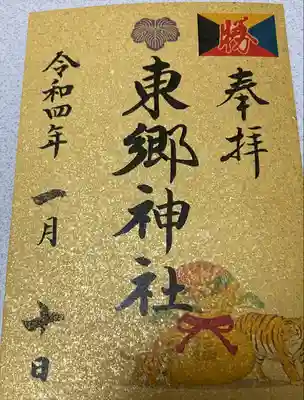 勝
奉拝
東郷神社
令和四年 一月 十日